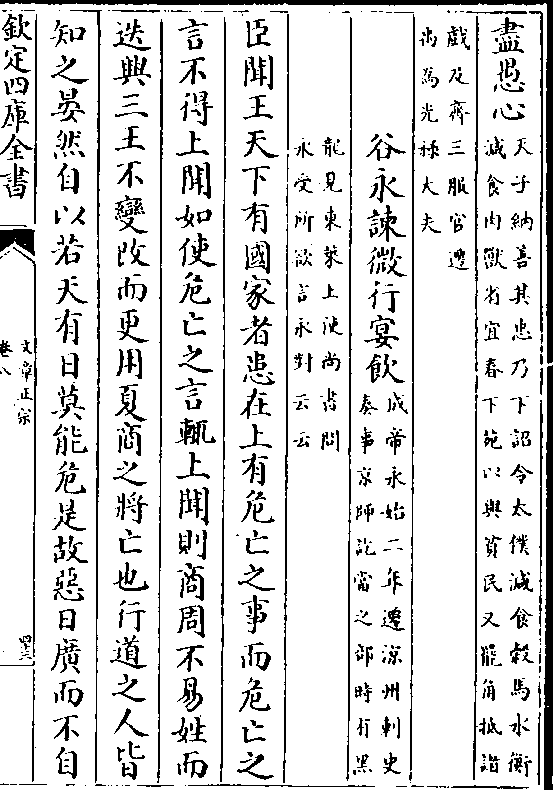 盡愚心天子納善其忠乃下詔令太僕減食穀馬水衡
減食肉獸省宜春下苑以與貧民又罷角抵諸
戲及齊三服官遷
禹爲光祿大夫
谷永諫微行宴飲成帝永始二年遷涼州刺史
奏事京師訖當之部時有黑
龍見東萊上使尚書問
永受所欲言永對云云
臣聞王天下有國家者患在上有危亡之事而危亡之
言不得上聞如使危亡之言輒上聞則商周不易姓而
迭興三王不變改而更用夏商之將亡也行道之人皆
知之晏然自以若天有日莫能危是故惡日廣而不自
欽定四庫全書
文章正宗
卷八